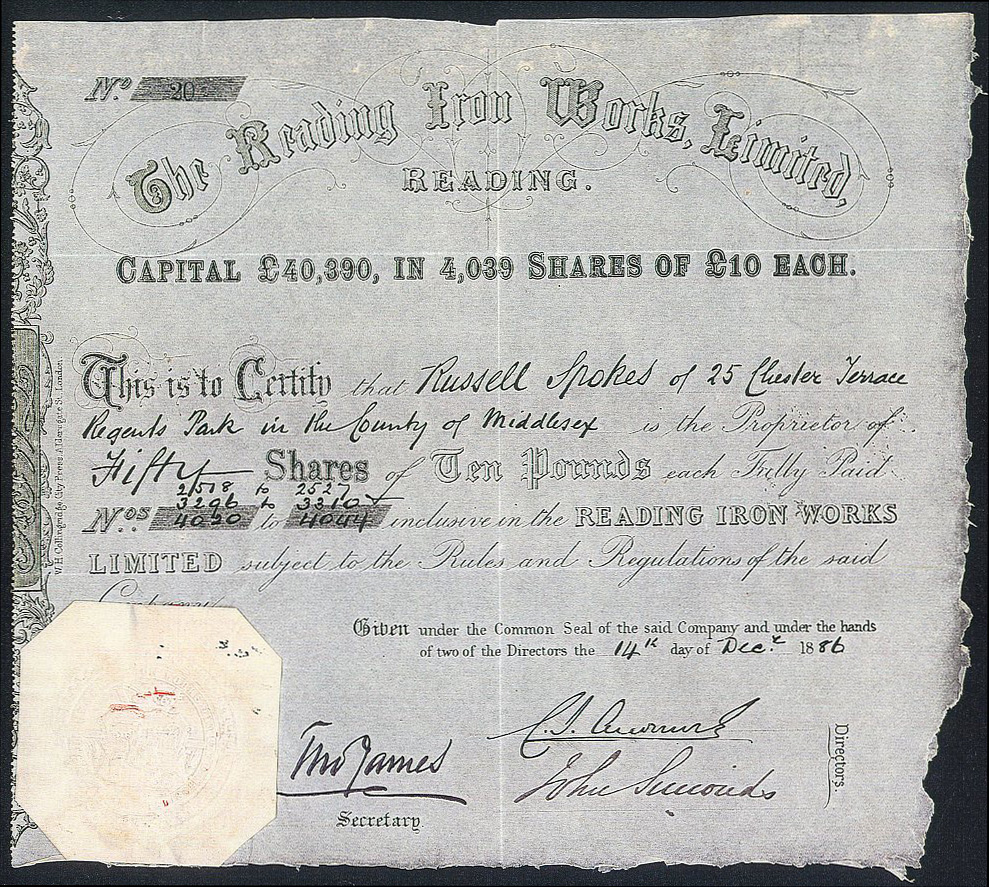 No. 20
The Reading Iron Works, Limited,
READING.
CAPITAL £40,390, IN 4,039 SHARES OF £10 EACH.
This is to Certify that Russell Spokes of 25 Chester Terrace
Regents Park in the County of Middlesex is the Proprietor of
Fifty Shares of Ten Pounds each Fully Paid
2518 to 2527
3296 to 3310
Nos. 4020 to 4044 inclusive in the READING IRON WORKS
LIMITED subject to the Rules and Regulations of the said
Company
Given under the Common Seal of the said Company and under the hands
of two of the Directors the 14th day of Decr. 1886
Thos James
Secretary.
John Simonds
Directors.
W.H. Collingridge, City Press, Aldersgate St. London.